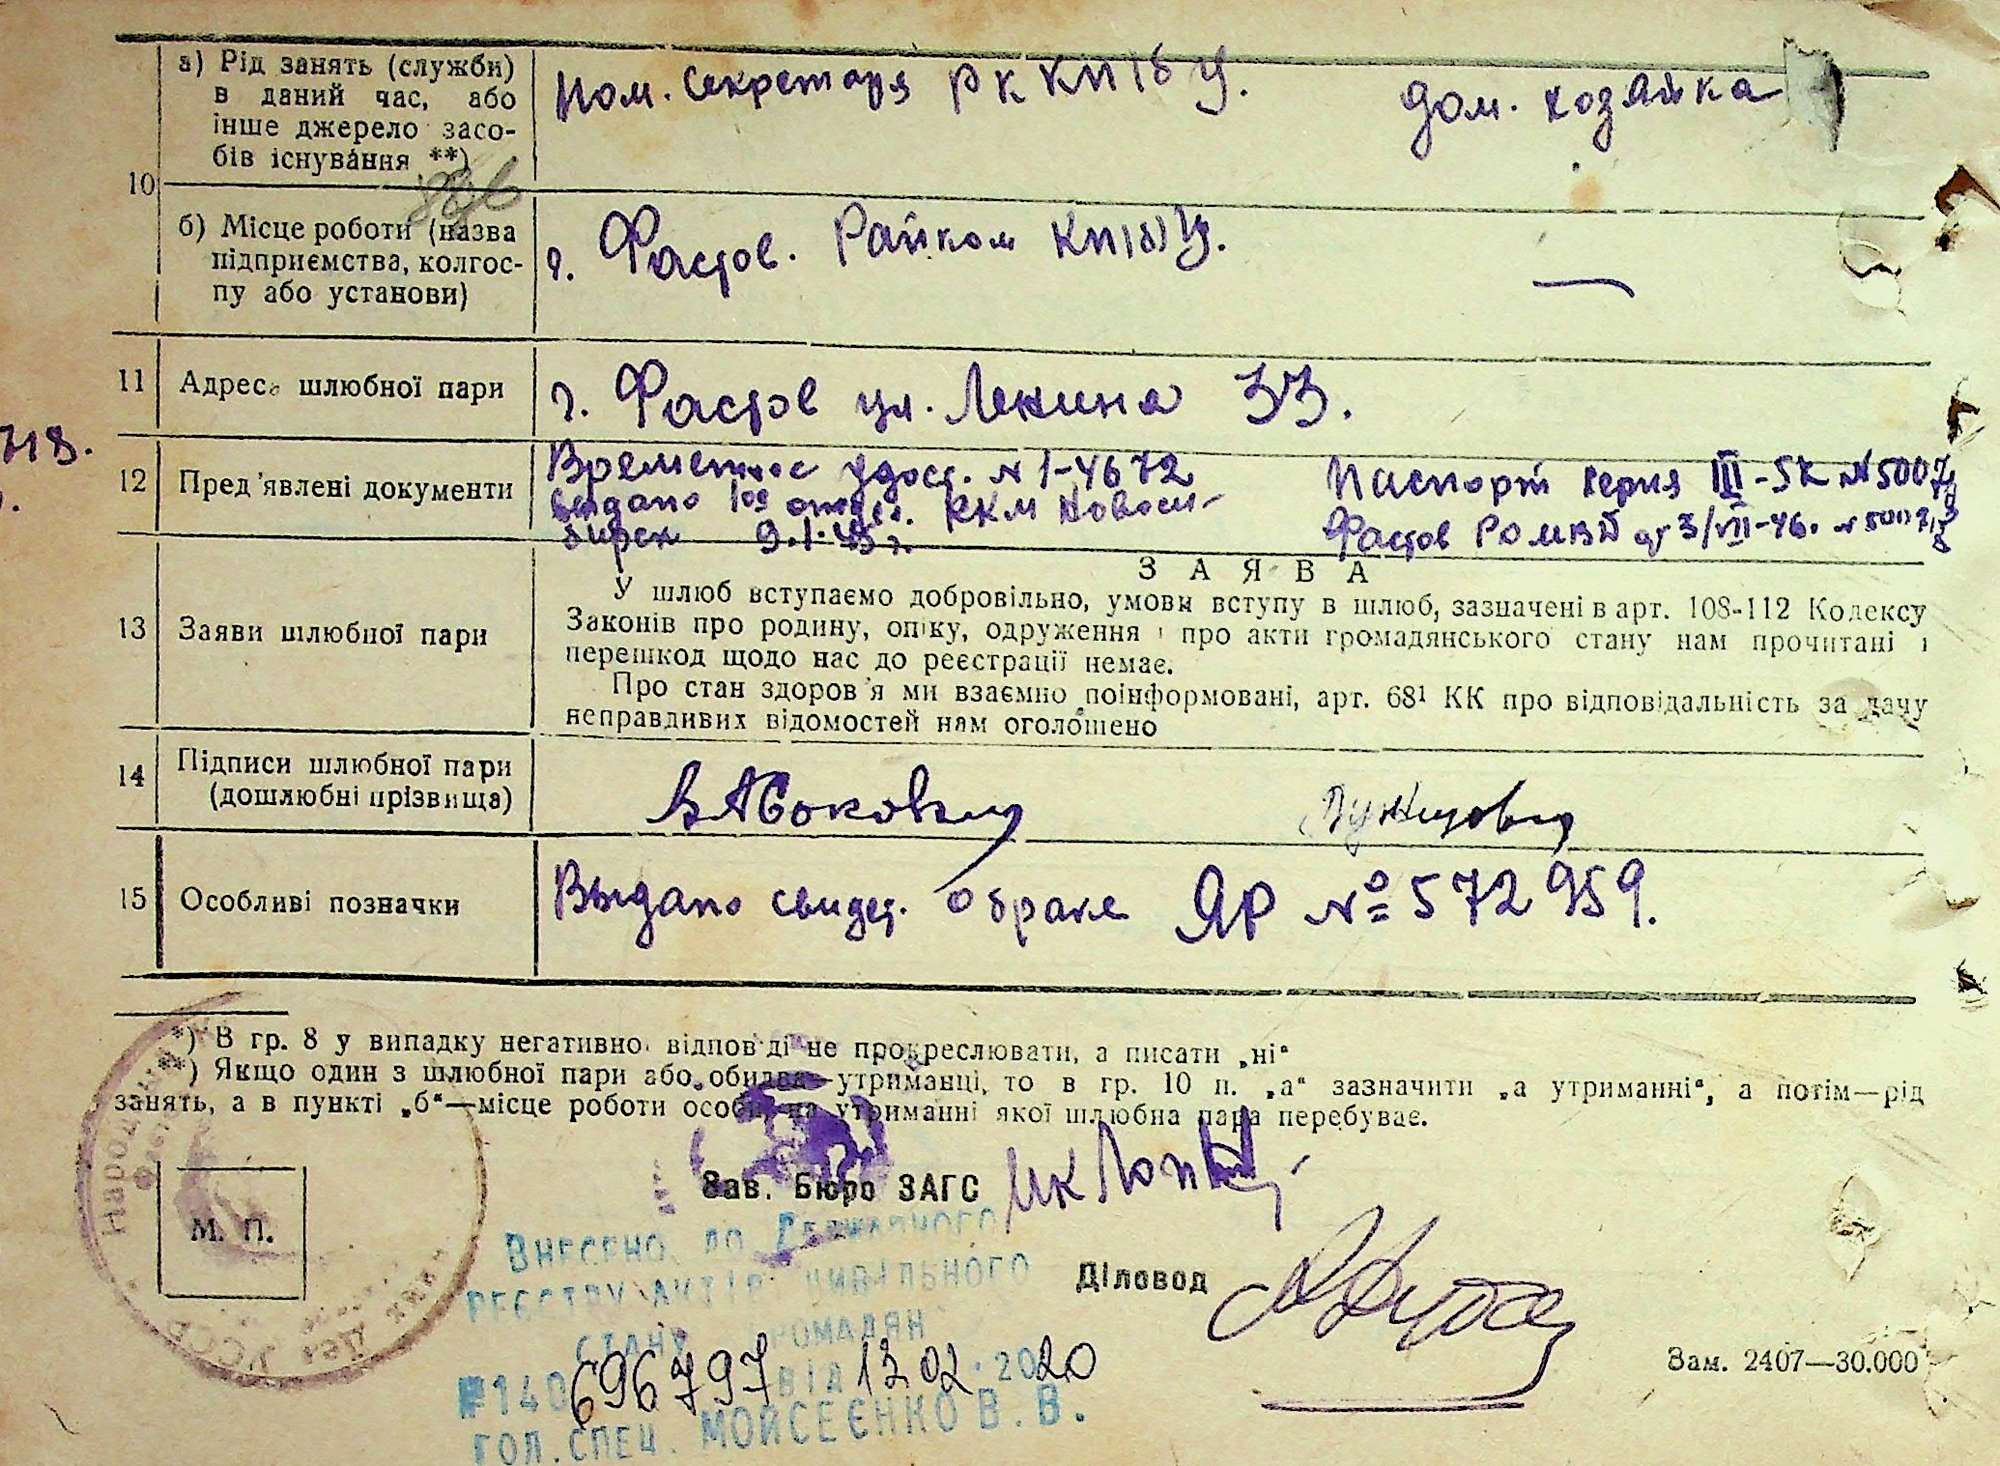 10
а) Рід занять (служби)
в даний час, або
інше джерело засо-
бів існування **)
Пом. Секретаря РК КП(б)У.
дом. хозяйка
б) Місце роботи (назва
підприємства, колгос-
пу або установи)
г. Фастов. Райком КП(б)У.
—
11
Адреса шлюбної пари
г. Фастов ул. Ленина 33.
718.
12
Пред'явлені документи
Временное удост. N 1-4672
выдано отдел. РКМ Новоси-
бирск 9.1.45 г.
Паспорт серия III-SK N 5007
Фастов РОМВД от 3/VII-46.
13
Заяви шлюбної пари
ЗАЯВА
У шлюб вступаємо добровільно, умови вступу в шлюб, зазначені в арт. 108-112 Кодексу
Законів про родину, опіку, одруження і про акти громадянського стану нам прочитані і
перешкод щодо нас до реєстрації немає.
Про стан здоров'я ми взаємно поінформовані, арт. 68¹ КК про відповідальність за дачу
неправдивих відомостей нам оголошено
14
Підписи шлюбної пари
(дошлюбні прізвища)
15
Особливі позначки
Выдано свидет. о браке ЯР №572959.
*) В гр. 8 у випадку негативної відповіді не прокреслювати, а писати „ні“
**) Якщо один з шлюбної пари або обидва—утриманці, то в гр. 10 п. „а“ зазначити „а утриманні“, а потім—рід
занять, а в пункті „б“—місце роботи особи, на утриманні якої шлюбна пара перебуває.
М. П.
Зав. Бюро ЗАГС
Діловод
ВНЕСЕНО ДО ДЕРЖАВНОГО
РЕЄСТРУ АКТІВ ЦИВІЛЬНОГО
СТАНУ ГРОМАДЯН
№140696797 ВІД 13.02.2020
ГОЛ.СПЕЦ. МОЙСЕЄНКО В.В.
Зам. 2407—30.000